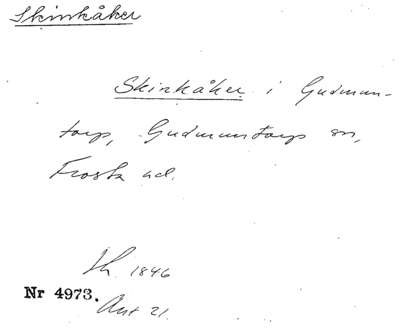 Skinkåker
Skinkåker i Gudmun-
torp, Gudmuntorps sn,
Frosta hd.
Sk. 1846
Nr 4973. Avt 21.